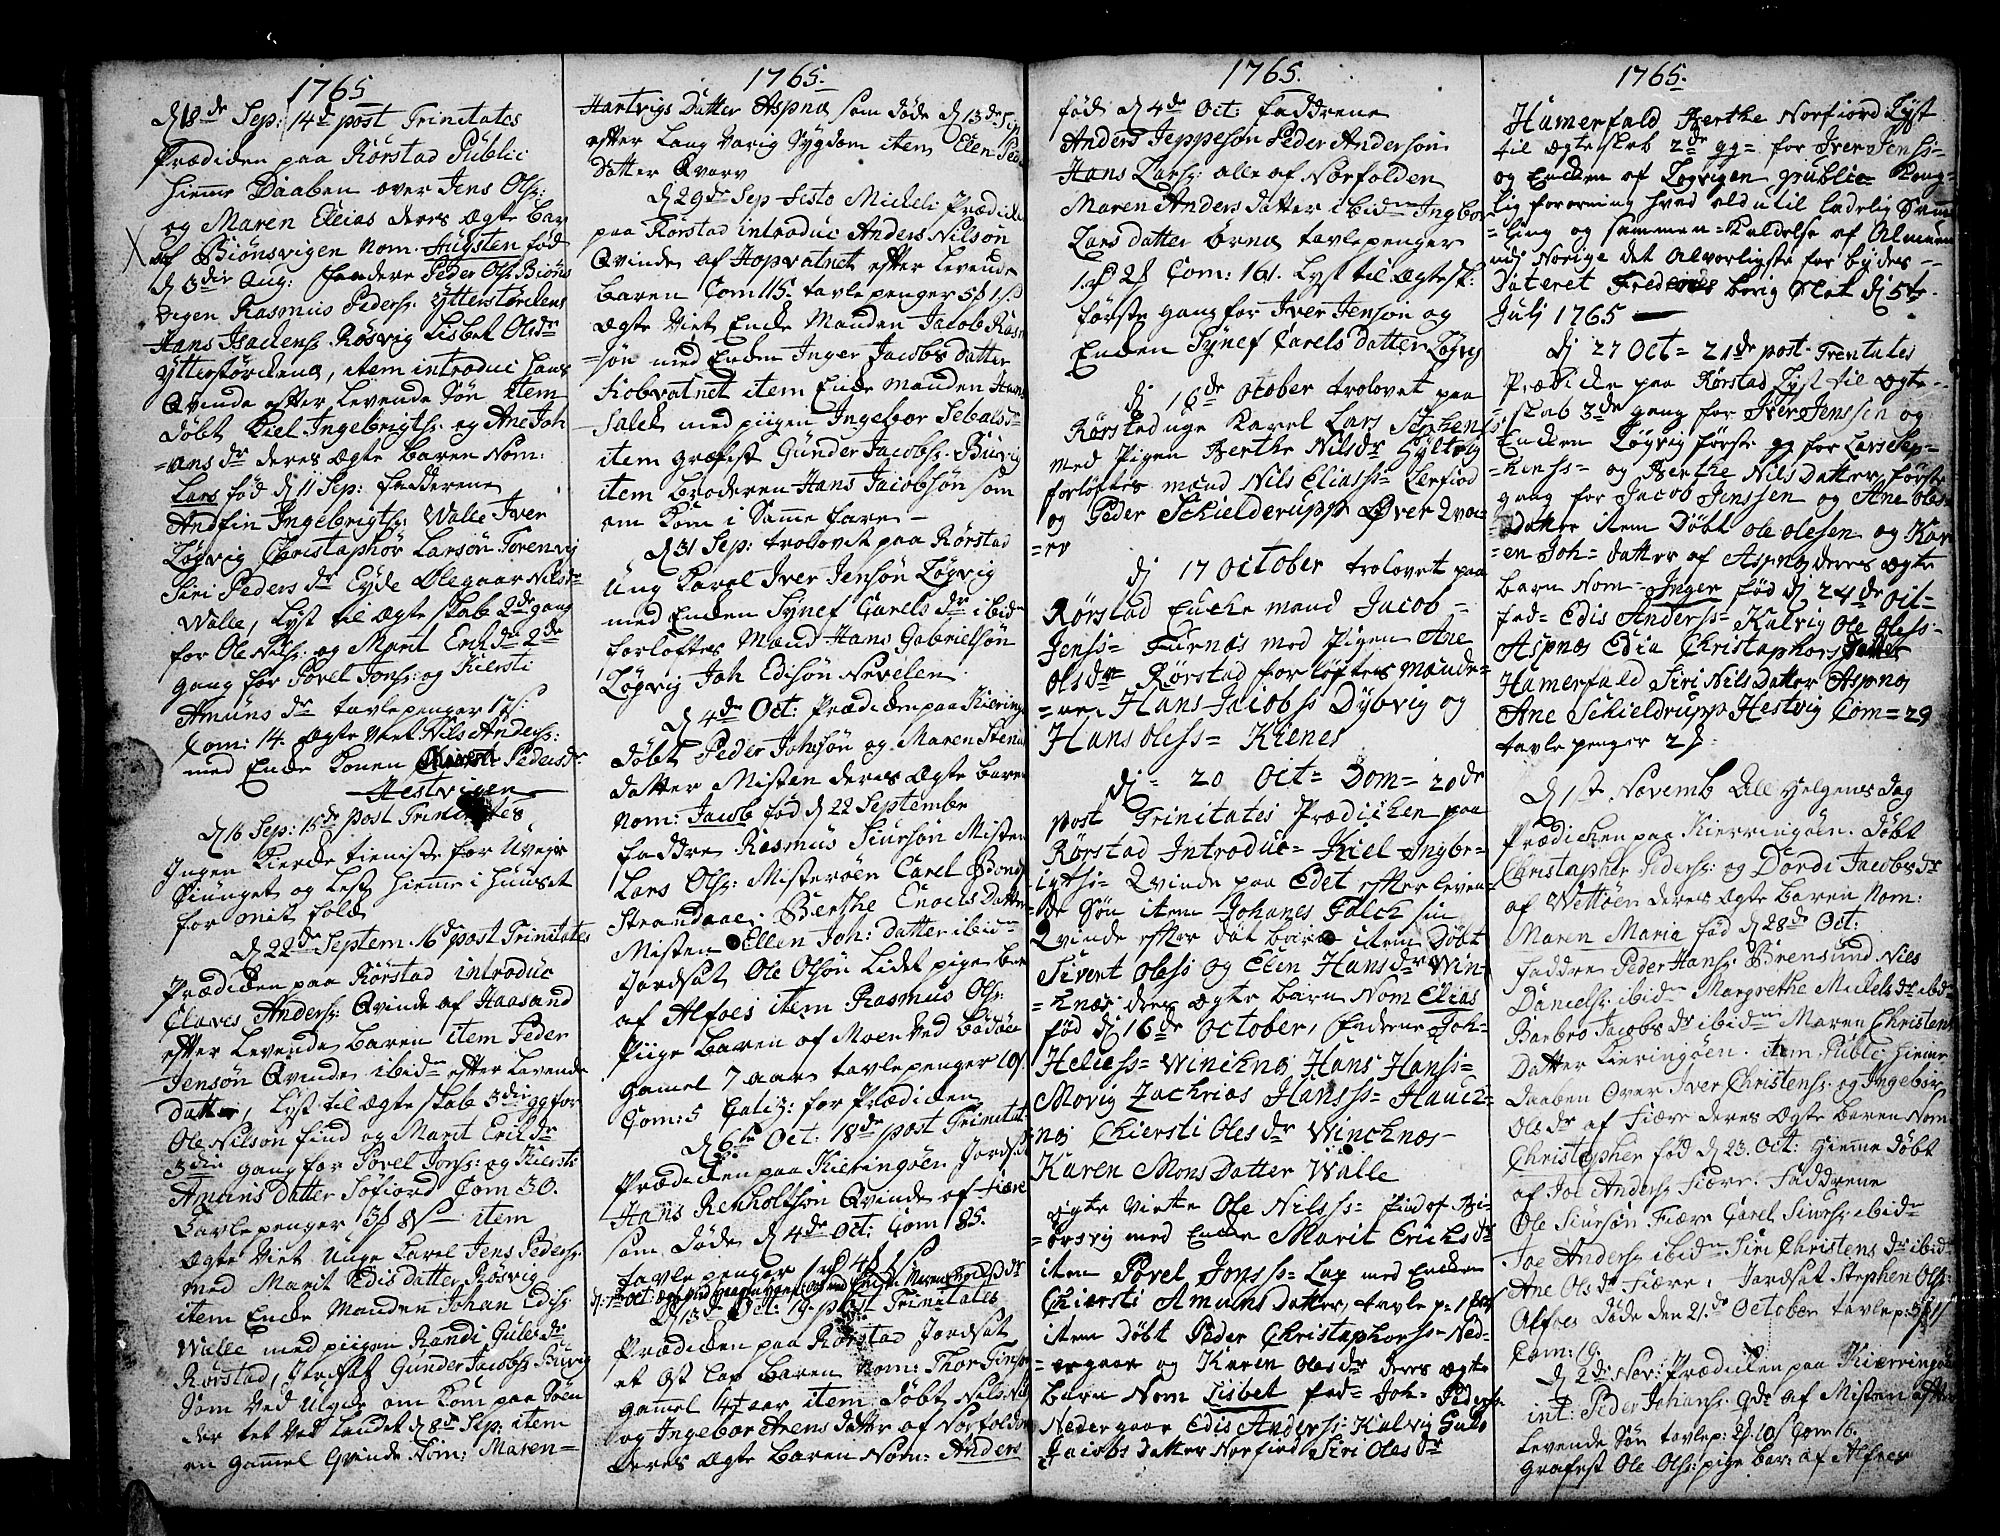 1765
D 18de Sep: 14de post Trinitates
Prædiden paa Rörstad Public
hieme Daaben over Jens Ols:
og Maren Eleias deres Ægte bar
af Biönsvigen Nom: Augsten föd
D 3die Aug: faadere Peder Ols: Biöns
vigen Rasmus Peders: Ytterstörckens
Hans Isachens: Rösvig Lisbet Olsdr
Ytterstörckens, item introduc hans
Qvinde efter Levende Sön item
Döbt Kiel Ingebrigts: og Ane Joh
=ans dr deres Ægte Baren Nom:
Lars föd D 11 Sep: Fadderene
Andfin Ingebrigts: Walle Iver
Lögvig Christaphor Larsön Torenvig
Siri Peders dr Eyde Olegaar Nilsdr
Walle, Lyst til Ægteskab 2de gang
for Ole Nils: og Marit Erich dr 2de
gang for Povel Jons: og Kiersti
Amuns dr tavlepenger 17 s:
Com: 14. Ægte Viet Nils Anders:
med Enke Konen Peders dr
Hestvigen
D 16 Sep: 15de post Trinitates
Ingen Kierde tieniste for Uvejr
Siunget og Lest hieme i Huuset
for mit folck
D 22de Septem. 16de post Trinitates
Prædiden paa Rörstad introduc
Claves Anders: Qvinde af Haasand
efter Levende Baren item Peder
Jensön Qvinde ibidm efter Levende
datter, Lyst til Ægteskab 3die gg for
Ole Nilsön find og Marit Erich dr
3die gang for Povel Jons: og Kiersti
Amuns Datter Söfiord Com 30.
Tavlepenger 3f 8s item
Ægte Viet Unge Karel Jens Peders:
med Marit Edis datter Rösvig
item Enke Manden Johan Edis:
Walle med piigen Randi Gules dr
Rörstad, Jordsat Gunder Jacobs: Buvig
Som Ved Ulyde om Kom paa Söen
der tet Ved Landet D 8de Sep: item
en gammel Qvinde Nom: Maren=
1765
Hartvigs Datter Aspnæs som döde D 13de Sep
efter Lang Varig Sygdom item Elen Peder
Datter Qvarv
D 29de Sep Festo Micheli Prædiden
paa Rörstad introduc Anders Nilsön
Qvinde af Hopvatnet efter Levende
Baren Com 115 tavlepenger 5f 1s
Ægte Viet Enke Manden Jacob Ras
=sön med Enken Inger Jacobs datter
Kobvatnet item Enke manden Hans
Salek med piigen Ingebor Sebalds:
item græfest Gunder Jacobs: Buvig
item broderen Hans Jacobsön som
om Kom i Samme fare
D 31 Sep: trolovet paa Rörstad
Ung Karel Iver Jensön Lögvig
med Enken Synef Carels dr ibidm
forloftes Mænd Hans Gabrielsön
Lögvig Joh Edisön Nevelen
D 4de Oct: Prædiden paa Kieringö
Döbt Peder Johsön og Maren Stenas
datter Misten deres Ægte Baren
Nom: Jacob föd D 22 Septembr
Faddre Rasmus Siursön Misten
Lars Ols: Misteröen Carel Bonds
Strandaae. Berthe Enochs Datter
Misten Ellen Joh: datter ibidm
Jordsat Ole Olsön Lidet pige bar
af Alfoes item Rasmus Ols:
Piige Baren af Moen Ved Bodöen
gamel 7 aar tavlepenger 10s.
Com: 5 Catiz: for Prædiden
D 6te Oct: 18de post Trinitat
Prædiden paa Kieringöen Jordsat
Hans Renholtsön Qvinde af Fiære
som Döde D 4de Oct: Com 185.
tavlepenger 1rd 4f 1s
D 13de Oct: 19 post Trinitates
Prædiden paa Rörstad Jordsat
et Ost Lap Baren Nom: Thor Fins
gammel 4 aar item Döbt Nils Nils
og Ingebor Arens datter af Norfolden
deres Ægte Baren Nom: Anders
1765.
föd D 4de Oct: Faddrene
Anders Jeppesön Peder Andersön
Hans Lars: alle af Norfolden
Maren Anders datter ibidm Ingbor
Lars datter Örnes tavlepenger
1rd 2s Com: 161. Lyst til Ægtesk:
förste gang for Iver Jensön og
Enken Synef Carels Datter Lögvig
dj 16de October trolovet paa
Rörstad unge Karel Lars Stephens
med Pigen Berthe Nils dr Gyltvig
forloftes mænd Nils Eliass= Leirfiord
og Peder Schielderupp Över Qva=
=rv
dj 17 October trolovet paa
Rörstad Encke mand Jacob=
Jenss= Furnæs med Pigen Ane
Ols dr Rörstad forlöftes mænde=
=ne Hans Jacobss Dybvig og
Hans Oless= Kienes
dj= 20 Oct= Dom= 20de
post Trinitates Prædicken paa
Rörstad Introduc= Kiel Ingbe=
rigtss= Qvinde paa Edet efter leven=
de Sön item Johanes Falck sin
Qvinde efter död barn item Döbt
Sivert Oless og Elen Hans dr Win=
=knæs deres Ægte barn Nom Elias
föd dj 16de October, Fadrene Joh=
Heliess= Wincknæs Hans Hanss=
Movig Zachrias Hanss= Hauck=
næs Chiersti Oles dr Wincknæs=
Karen Mons Datter Walle
Ægte Viet Ole Nilss= find af Bi=
=örsvig med Encke Marit Erichs dr
item Povel Jonss= Lap med Encken
Chiersti Amuns Datter, tavle p= 1 f
item Döbt Peder Christaphorss= Ned=
=ergaar og Karen Oles dr deres Ægte
barn Nom Lisbet fad= Joh= Peders:
Nedergaar Edis Anderss: Kalvig Gulo
Jacobs Datter Norfiord Siri Oles dr
1765.
Hamerfald Berthe Norfiord Lyst
til Ægteskab 2de gg= for Iver Jenss=
og Encken af Lögvigen public= Kong=
lig forordning hved ald utilladelig Saml
=ling og sammen=Kaldelse af Almuen
udj Norige det Alvorligste forbydes --
Dateret Fredericsborig Slot dj 5te
Julj 1765
dj 27 Oct= 21de post Trentates
Prædicke paa Rörstad Lyst til Ægte=
skab 3de gang for Iver Jenssen og
Encken Lögvig förste gg for Lars Step=
=henss= og Berthe Nils Datter, förste
gang for Jacob Jenssen og Ane Oles=
Datter item Döbt Ole Olesen og Kar
=en Joh= datter af Aspnæs deres Ægte
barn Nom= Inger föd dj 24de Oct=
fad= Edis Anderss= Kalvig Ole Oless=
Aspnæs Edia Christaphors datter
Hamerfald Siri Nils Datter Aspnæs
Ane Schieldrupp Hestvig Com= 29
tavlepenger 2f.
D 1st Novemb Alle Helgenes Dag
Prædicken paa Kierringöen. Döbt
Christapher Peders: og Dordi Jacobs dr
af Wettöen deres Ægte Baren Nom:
Maren Maria föd D 28de Oct:
Faddre Peder Hans: Brensund Niels
Daniels: ibidm Margrethe Mickels dr ibidm
Barbro Jacobs dr ibidm Maren Christens
Datter Kieringöen. item Public: hieme
Daaben Over Iver Christens: og Ingebör
Ols dr af Fiære deres Ægte Baren Nom
Christopher föd D 23. Oct: Hieme Döbt
af Joe Anders: Fiære. Faddrene
Ole Siursön Fiære Carel Siurs: ibidm
Joe Anders: ibidm Siri Christens dr ibidm
Ane Ols dr Fiære, Jordsat Stephen Ols:
Alfoes Döde den 21. de October tavlep: 3f 1s
Com: 19.
D 2de Nov: Prædiken paa Kierringöen
int: Peder Johans: Qde af Misten efter
Levende Sön tavlep: 2f. 10s Com: 6.
Grafest Ole Ols: pige bar: af Alfoes